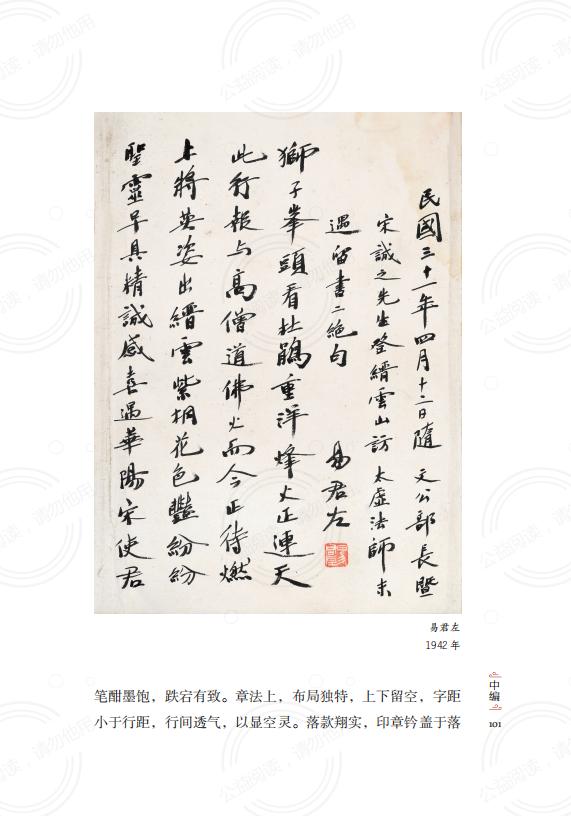 民國三十一年四月十二日隨 文公部長暨
宋誠之先生登縉雲山訪 太虛法師未
遇留書二絕句 易君左
獅子峯頭看杜鵑重洋烽火正連天
此行報与高僧道佛火而今正待燃
上將英姿出縉雲紫桐花色豔紛紛
聖靈早具精誠感喜遇華陽宋使君
易君左
1942 年
笔酣墨饱，跌宕有致。章法上，布局独特，上下留空，字距
小于行距，行间透气，以显空灵。落款翔实，印章钤盖于落
中编
101
公益阅读，请勿他用